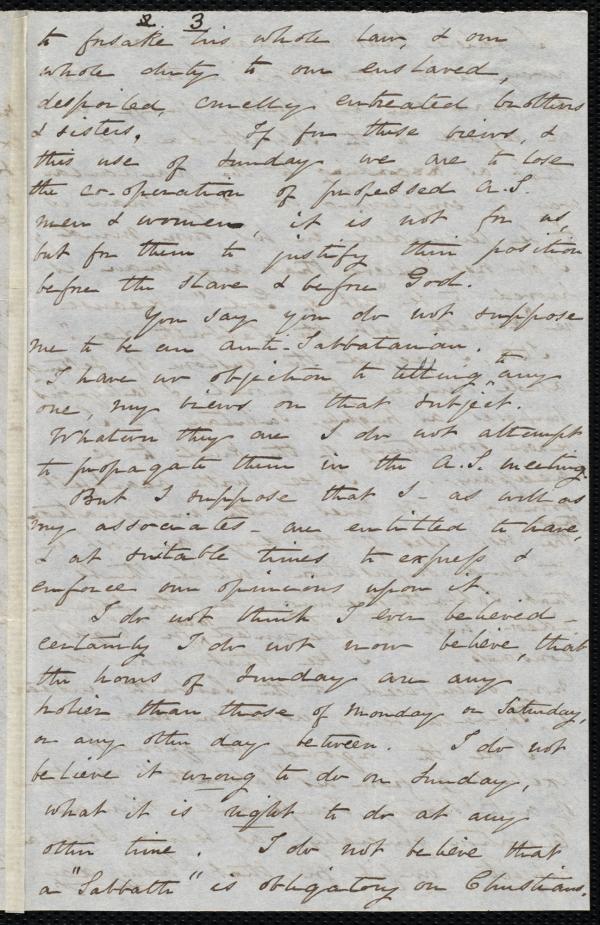 2 3
to forsake his whole law, & our
whole duty to our enslaved,
despoiled, cruelly entreated brothers
& sisters. If for these views, &
this use of Sunday we are to lose
the co-operation of professed A.S.
men & women, it is not for us,
but for them to justify their position
before the slave & before God.
You say you do not suppose
me to be an anti-Sabbatarian.
I have no objection to telling to any
one, my views on that subject.
Whatever they are I do not attempt
to propagate them in the A.S. meeting.
But I suppose that I - as well as
my associates - are entitled to have,
& at suitable times to express &
enforce our opinions upon it.
I do not think I ever believed -
certainly I do not now believe, that
the hours of Sunday are any
holier than those of Monday or Saturday,
or any other day between. I do not
believe it wrong to do on Sunday,
what it is right to do at any
other time. I do not believe that
a "Sabbath" is obligatory on Christians.